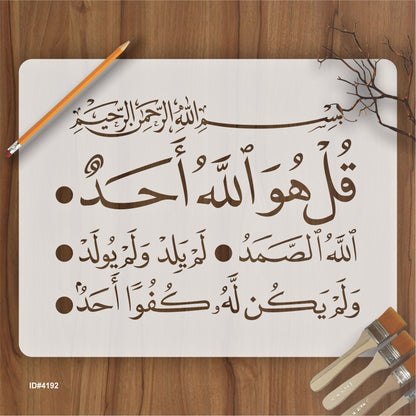 بِسْمِ اللهِ الرَّحْمٰنِ الرَّحِيْمِ
قُلْ هُوَ ٱللَّهُ أَحَدٌ ●
ٱللَّهُ ٱلصَّمَدُ ● لَمْ يَلِدْ وَلَمْ يُولَدْ ●
وَلَمْ يَكُن لَّهُۥ كُفُوًا أَحَدٌۢ ●
ID#4192